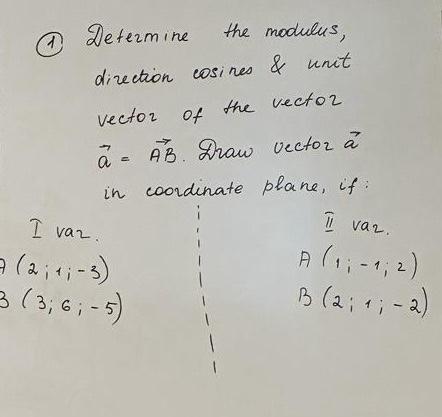 ① Determine the modulus,
direction cosines & unit
vector of the vector
a⃗ = A⃗B⃗. Draw vector a⃗
in coordinate plane, if:
I var.
A (2; 1; -3)
B (3; 6; -5)
II var.
A (1; -1; 2)
B (2; 1; -2)